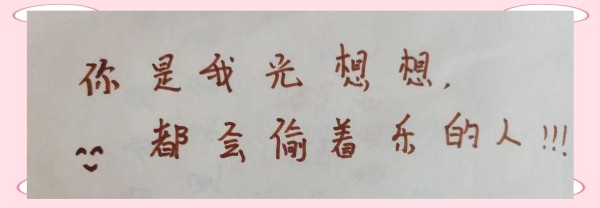 你是我光想想，
都会偷着乐的人!!!